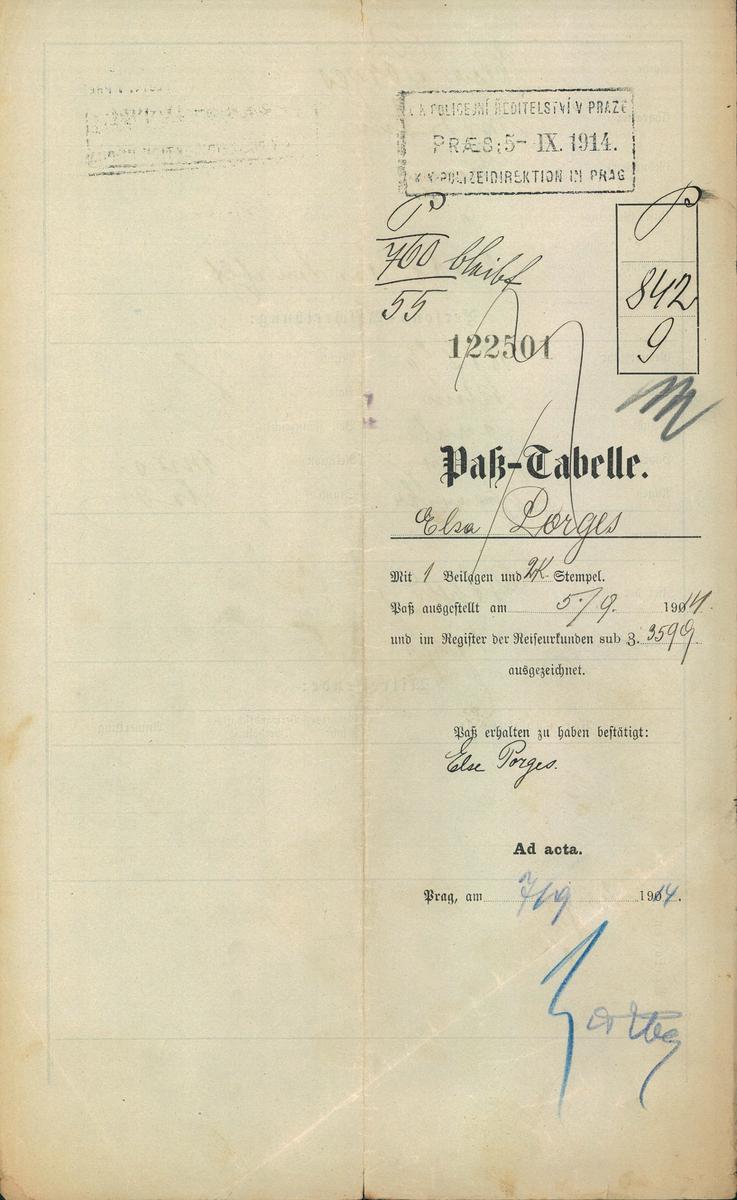 K. K. POLICEJNÍ ŘEDITELSTVÍ V PRAZE
PRÆS: 5- IX. 1914.
K. K. POLIZEIDIREKTION IN PRAG
P
760 bleibt
55
P
842
9
122501
Paß-Tabelle.
Elsa Porges
Mit 1 Beilagen und 2K Stempel.
Paß ausgestellt am 5./9. 1914.
und im Register der Reiseurkunden sub Z. 3599
ausgezeichnet.
Paß erhalten zu haben bestätigt:
Else Porges.
Ad acta.
Prag, am 7/9 1914.